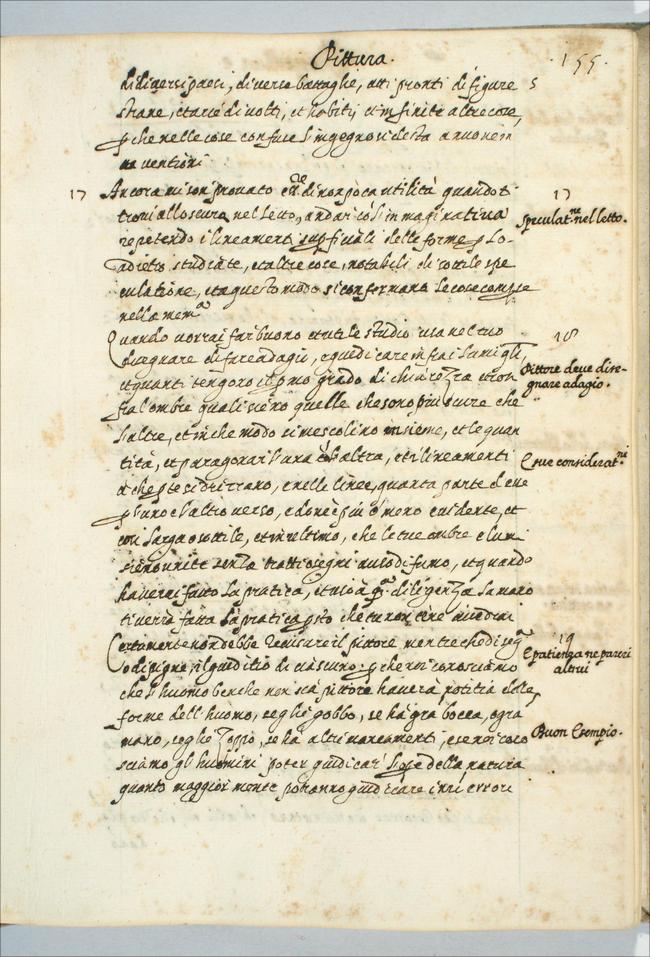 Pittura. 155.
di diversi paesi, diverse battaglie, atti pronti di figure 5
strane, et arie di volti, et habiti, et infinite altre cose,
p che nelle cose confuse l'ingegno si desta a nuove in
ventioni
17 Ancora mi son provato esse di non poca utilità quando t
trovi allo scuro nel letto, andar cō l'imaginativa
repetendo i lineamenti supficiali delle forme p lo
adietro studiate, et altre cose, notabili di sottile spe
culatione, et a questo modo si confermano le cose comprese
nella mema
17
speculatne nel letto.
Quando vorrai far buono et utile studio usa nel tuo
disegnare di fare adagio, e giudicare infra i lumi qli,
et quanti tengono il pmo grado di chiarezza et con
fra l'ombre quali sieno quelle che sono più scure che
l'altre, et in che modo si mescolino insieme, et le quan
tità, et paragonar l'una cō l'altra, et i lineamenti
a che pte si drizzano, e nelle linee, quanta parte d'esse
p l'uno e l'altro verso, e dove è più o meno evidente, et
cosi larga o sottile, et in ultimo, che le tue ombre e lumi
sieno unite senza tratti o segni a uso di fumo, et quando
haverai fatto la pratica, et
diligenza la mano
ti verrà fatta la pratica psto che tu non te ne avedrai
18
Pittore deve dise-
gnare adagio.
E sue consideratni
Certamente non debbe recusare il pittore mentre che diseg
o dipigne, il giuditio di ciascuno: p che noi conosciamo
che l'huomo benche non sia pittore haverà notitia delle
forme dell'huomo, se gli è gobbo, se hà grā bocca, o gra
mano, se gli è zoppo, se hà altri mancamenti, e se noi cono
sciamo gli huomini poter giudicar l'ope della natura
quanto maggior mente potranno giudicare i nri errori
19
E patienza ne pareri
altrui
Buon Esempio.